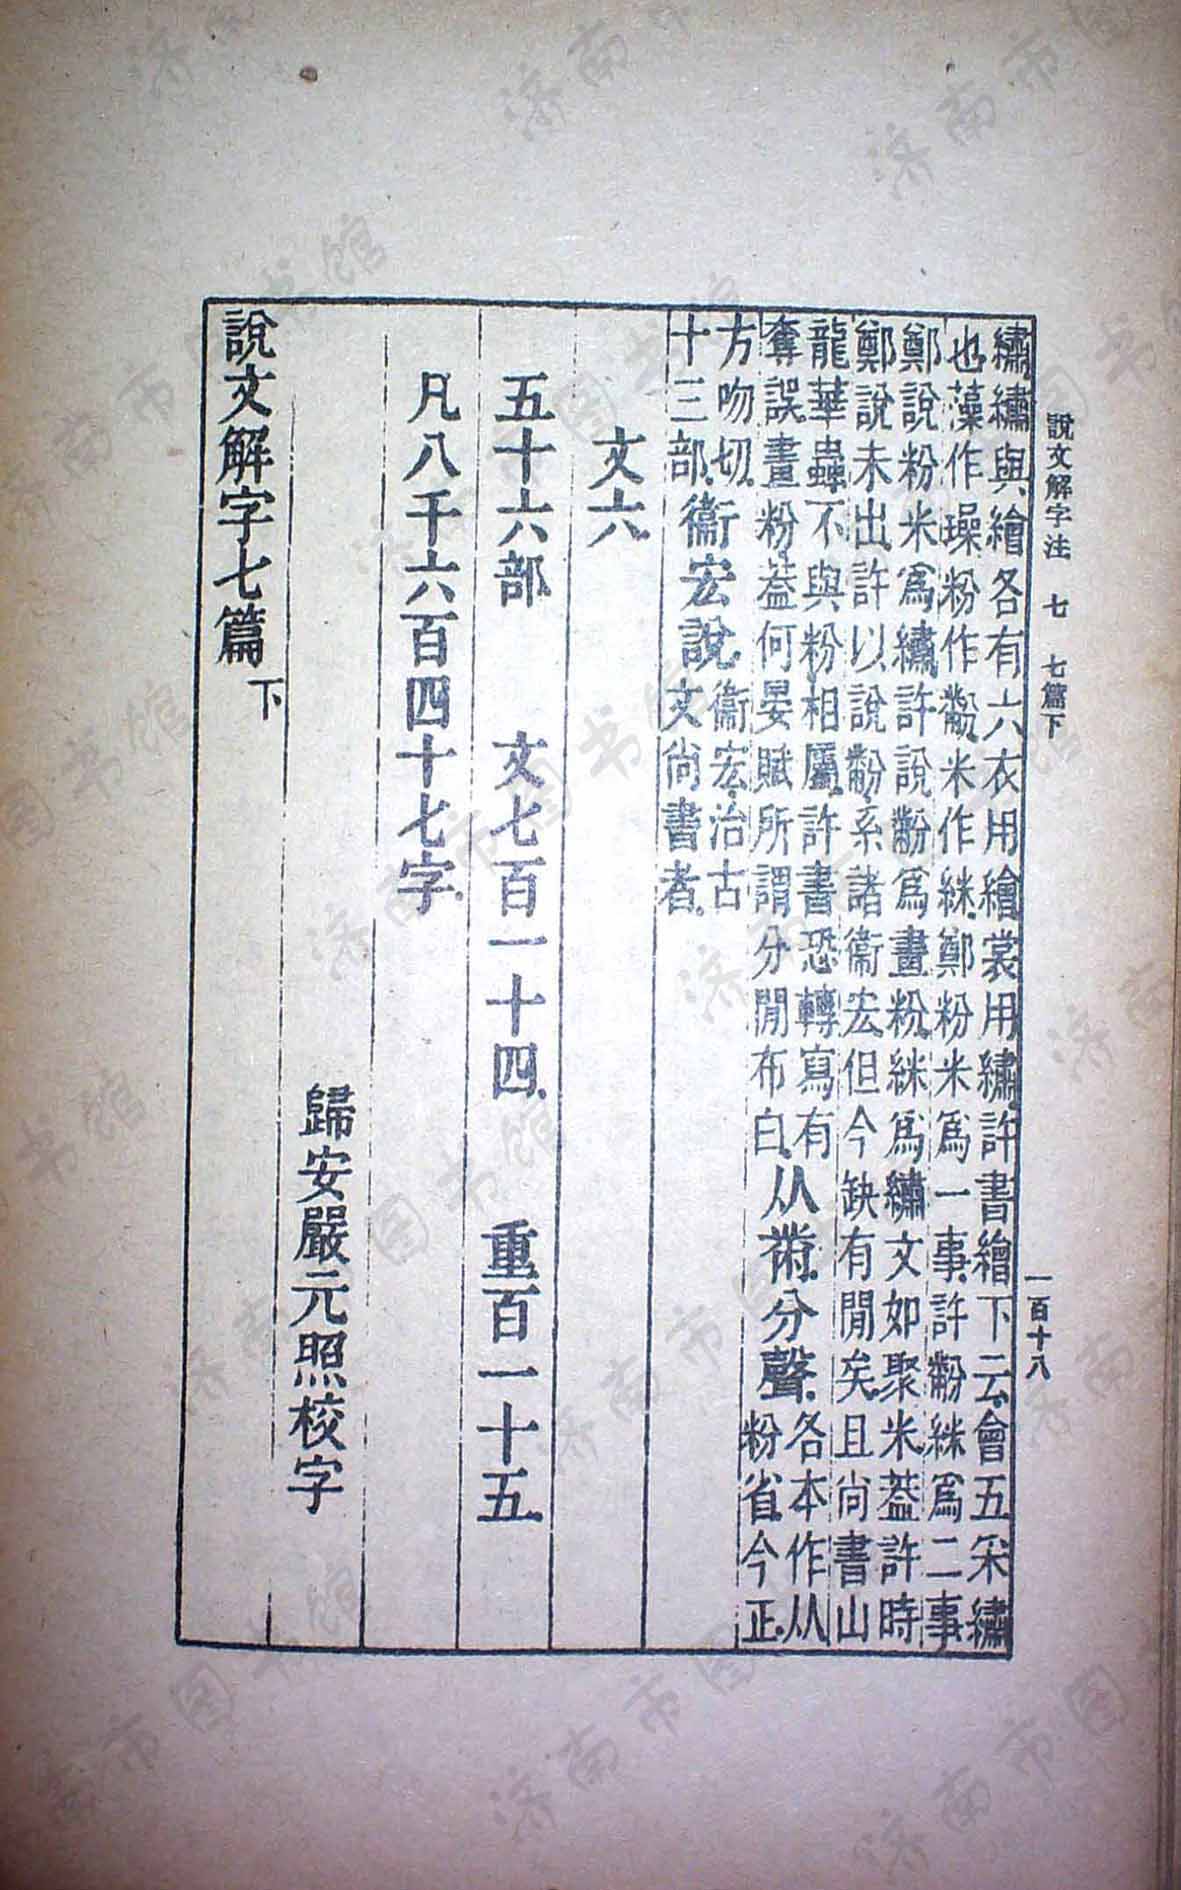 說文解字注 七 七篇下 一百十八
繡、繡與繪各有六、衣用繪、裳用繡、許書繪下云、會五采繡
也、藻作璪、粉作黺、米作䋛、鄭粉米爲一事、許黺䋛爲二事、
鄭說粉米爲繡、許說黺爲畫粉、䋛爲繡文如聚米、葢許時
鄭說未出、許以說黺系諸衞宏、但今缺有閒矣、且尙書山
龍華蟲、不與粉相屬、許書恐轉寫有
奪誤、畫粉、葢何晏賦所謂分閒布白、
从黹、分聲、
各本作从
粉省、今正、
方吻切、
十三部、
衞宏說、
衞宏、治古
文尙書者、
文六
五十六部 文七百一十四、 重百一十五、
凡八千六百四十七字、
歸安嚴元照校字
說文解字七篇下
济南市图书馆